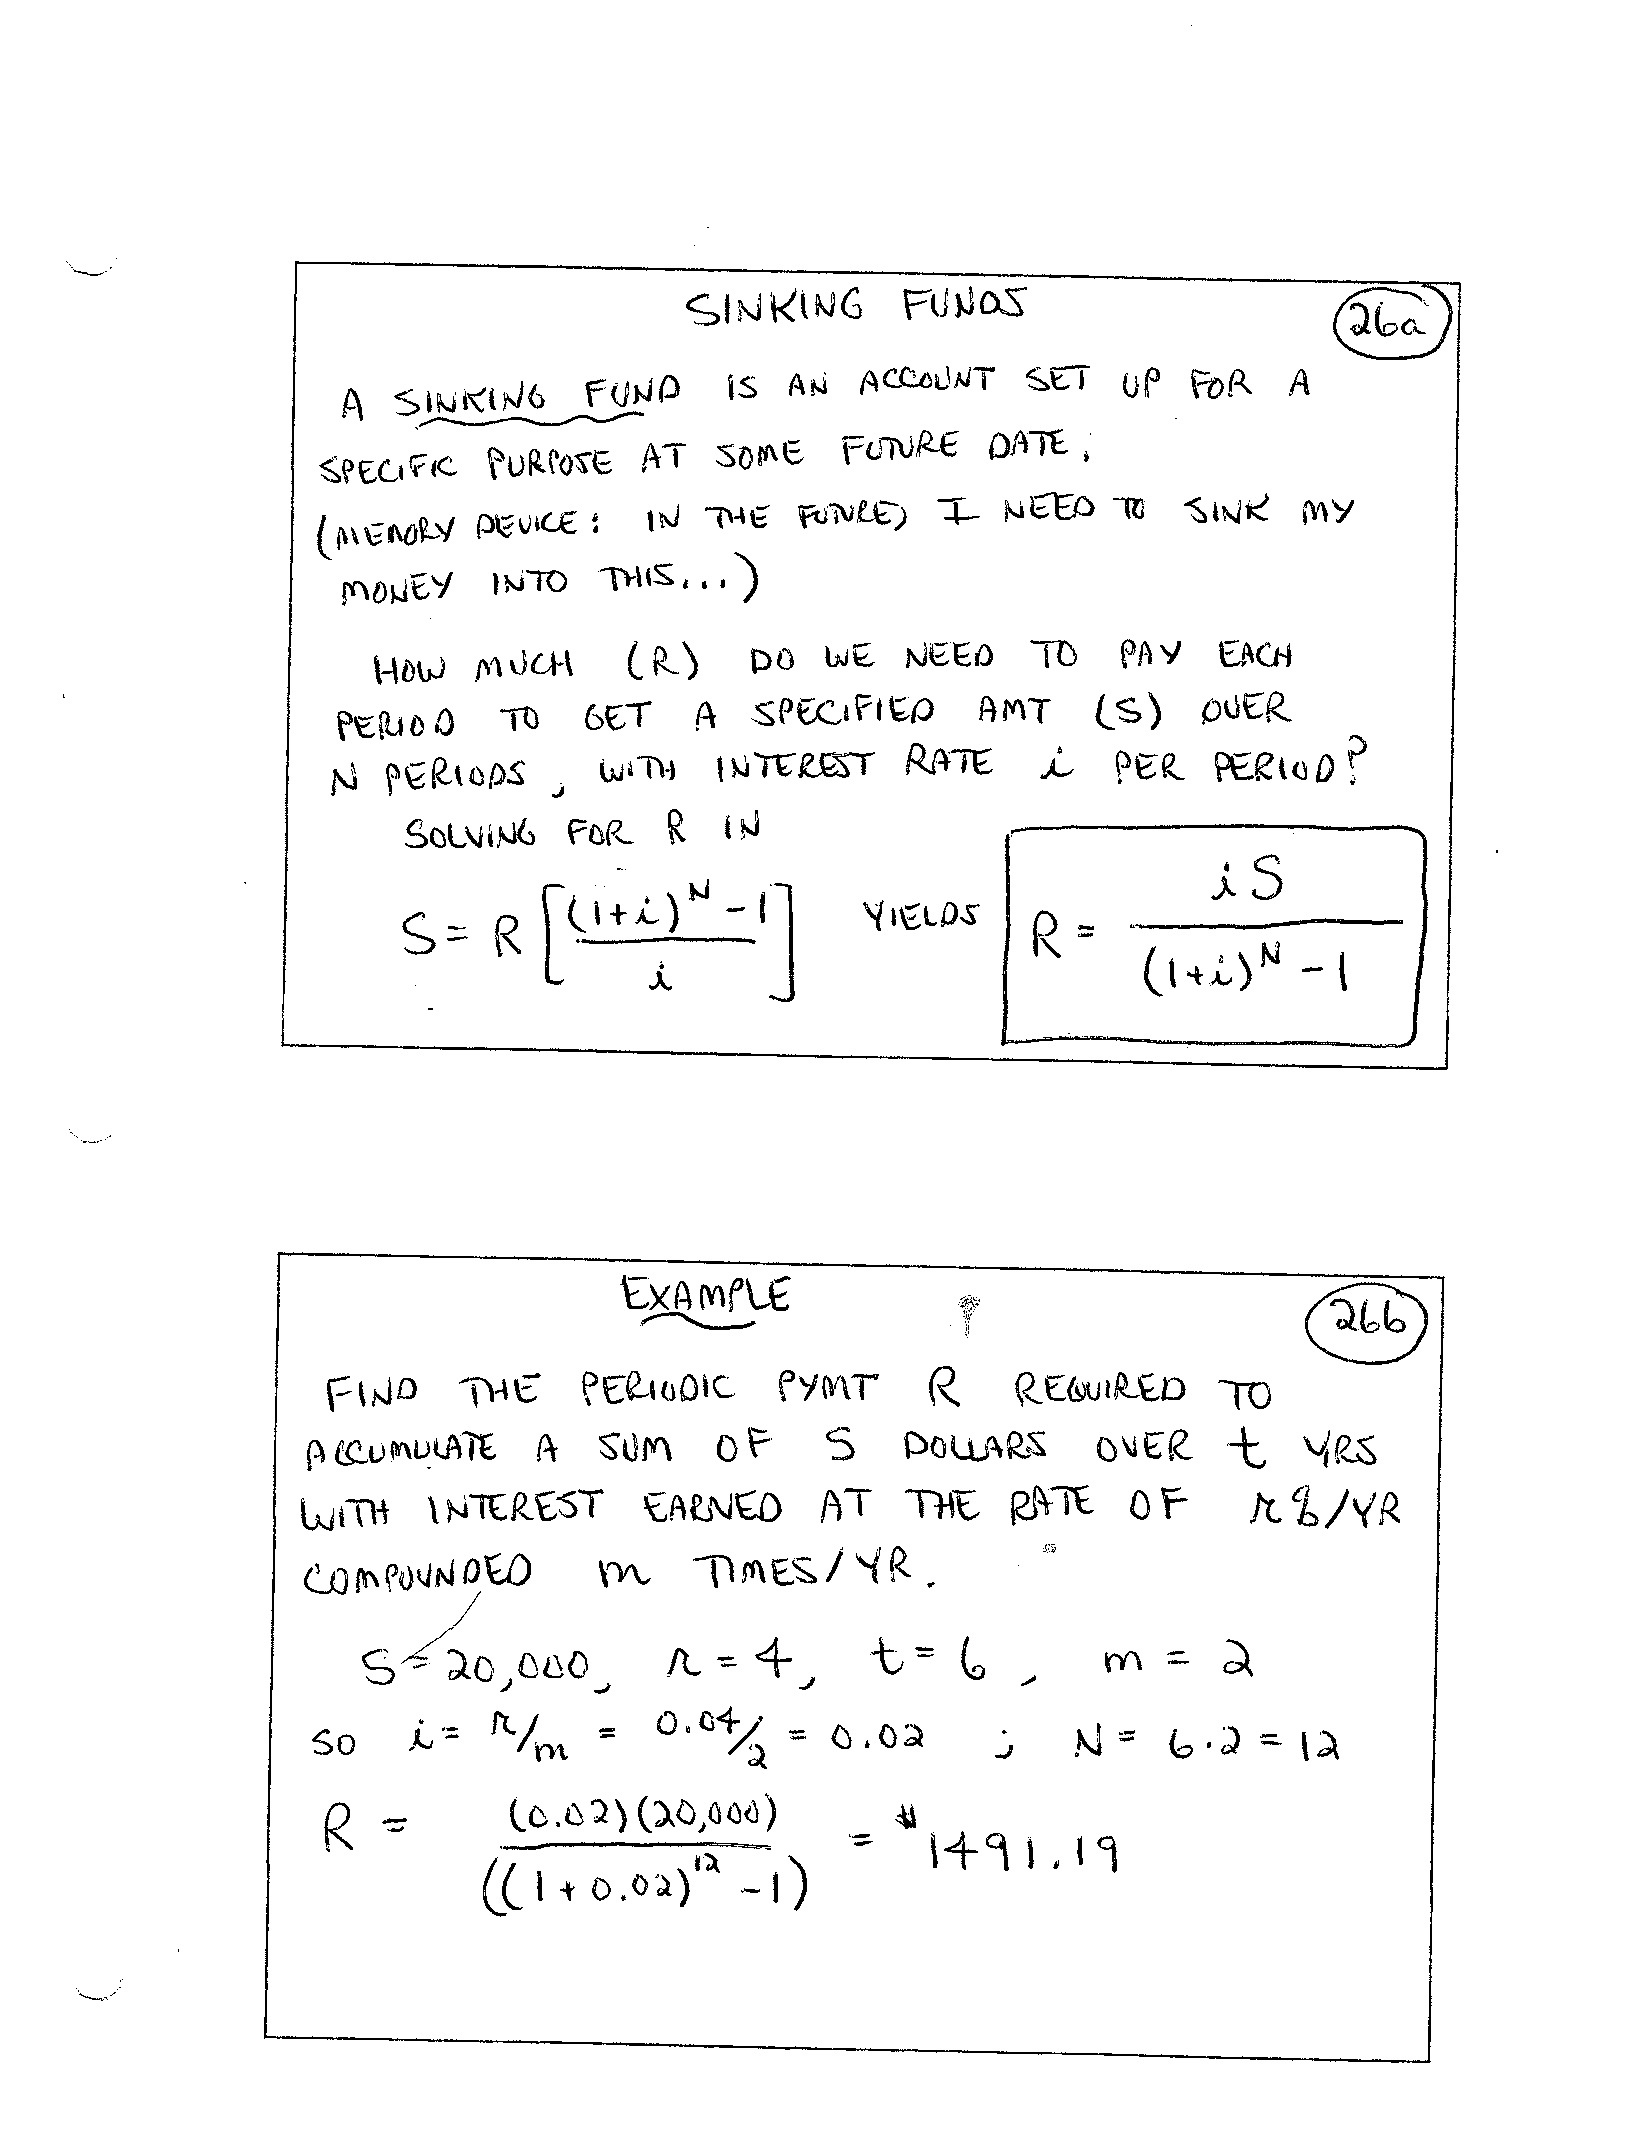 SINKING FUNDS
26a
A SINKING FUND IS AN ACCOUNT SET UP FOR A
SPECIFIC PURPOSE AT SOME FUTURE DATE.
(MEMORY DEVICE: IN THE FUTURE, I NEED TO SINK MY
MONEY INTO THIS...)
HOW MUCH (R) DO WE NEED TO PAY EACH
PERIOD TO GET A SPECIFIED AMT (S) OVER
N PERIODS, WITH INTEREST RATE i PER PERIOD?
SOLVING FOR R IN
S = R [((1+i)^N - 1) / i] YIELDS R = iS / ((1+i)^N - 1)
EXAMPLE
26b
FIND THE PERIODIC PYMT R REQUIRED TO
ACCUMULATE A SUM OF S DOLLARS OVER t YRS
WITH INTEREST EARNED AT THE RATE OF r%/YR
COMPOUNDED m TIMES/YR.
S = 20,000, r = 4, t = 6, m = 2
SO i = r/m = 0.04/2 = 0.02 ; N = 6·2 = 12
R = (0.02)(20,000) / ((1+0.02)^12 - 1) = $1491.19